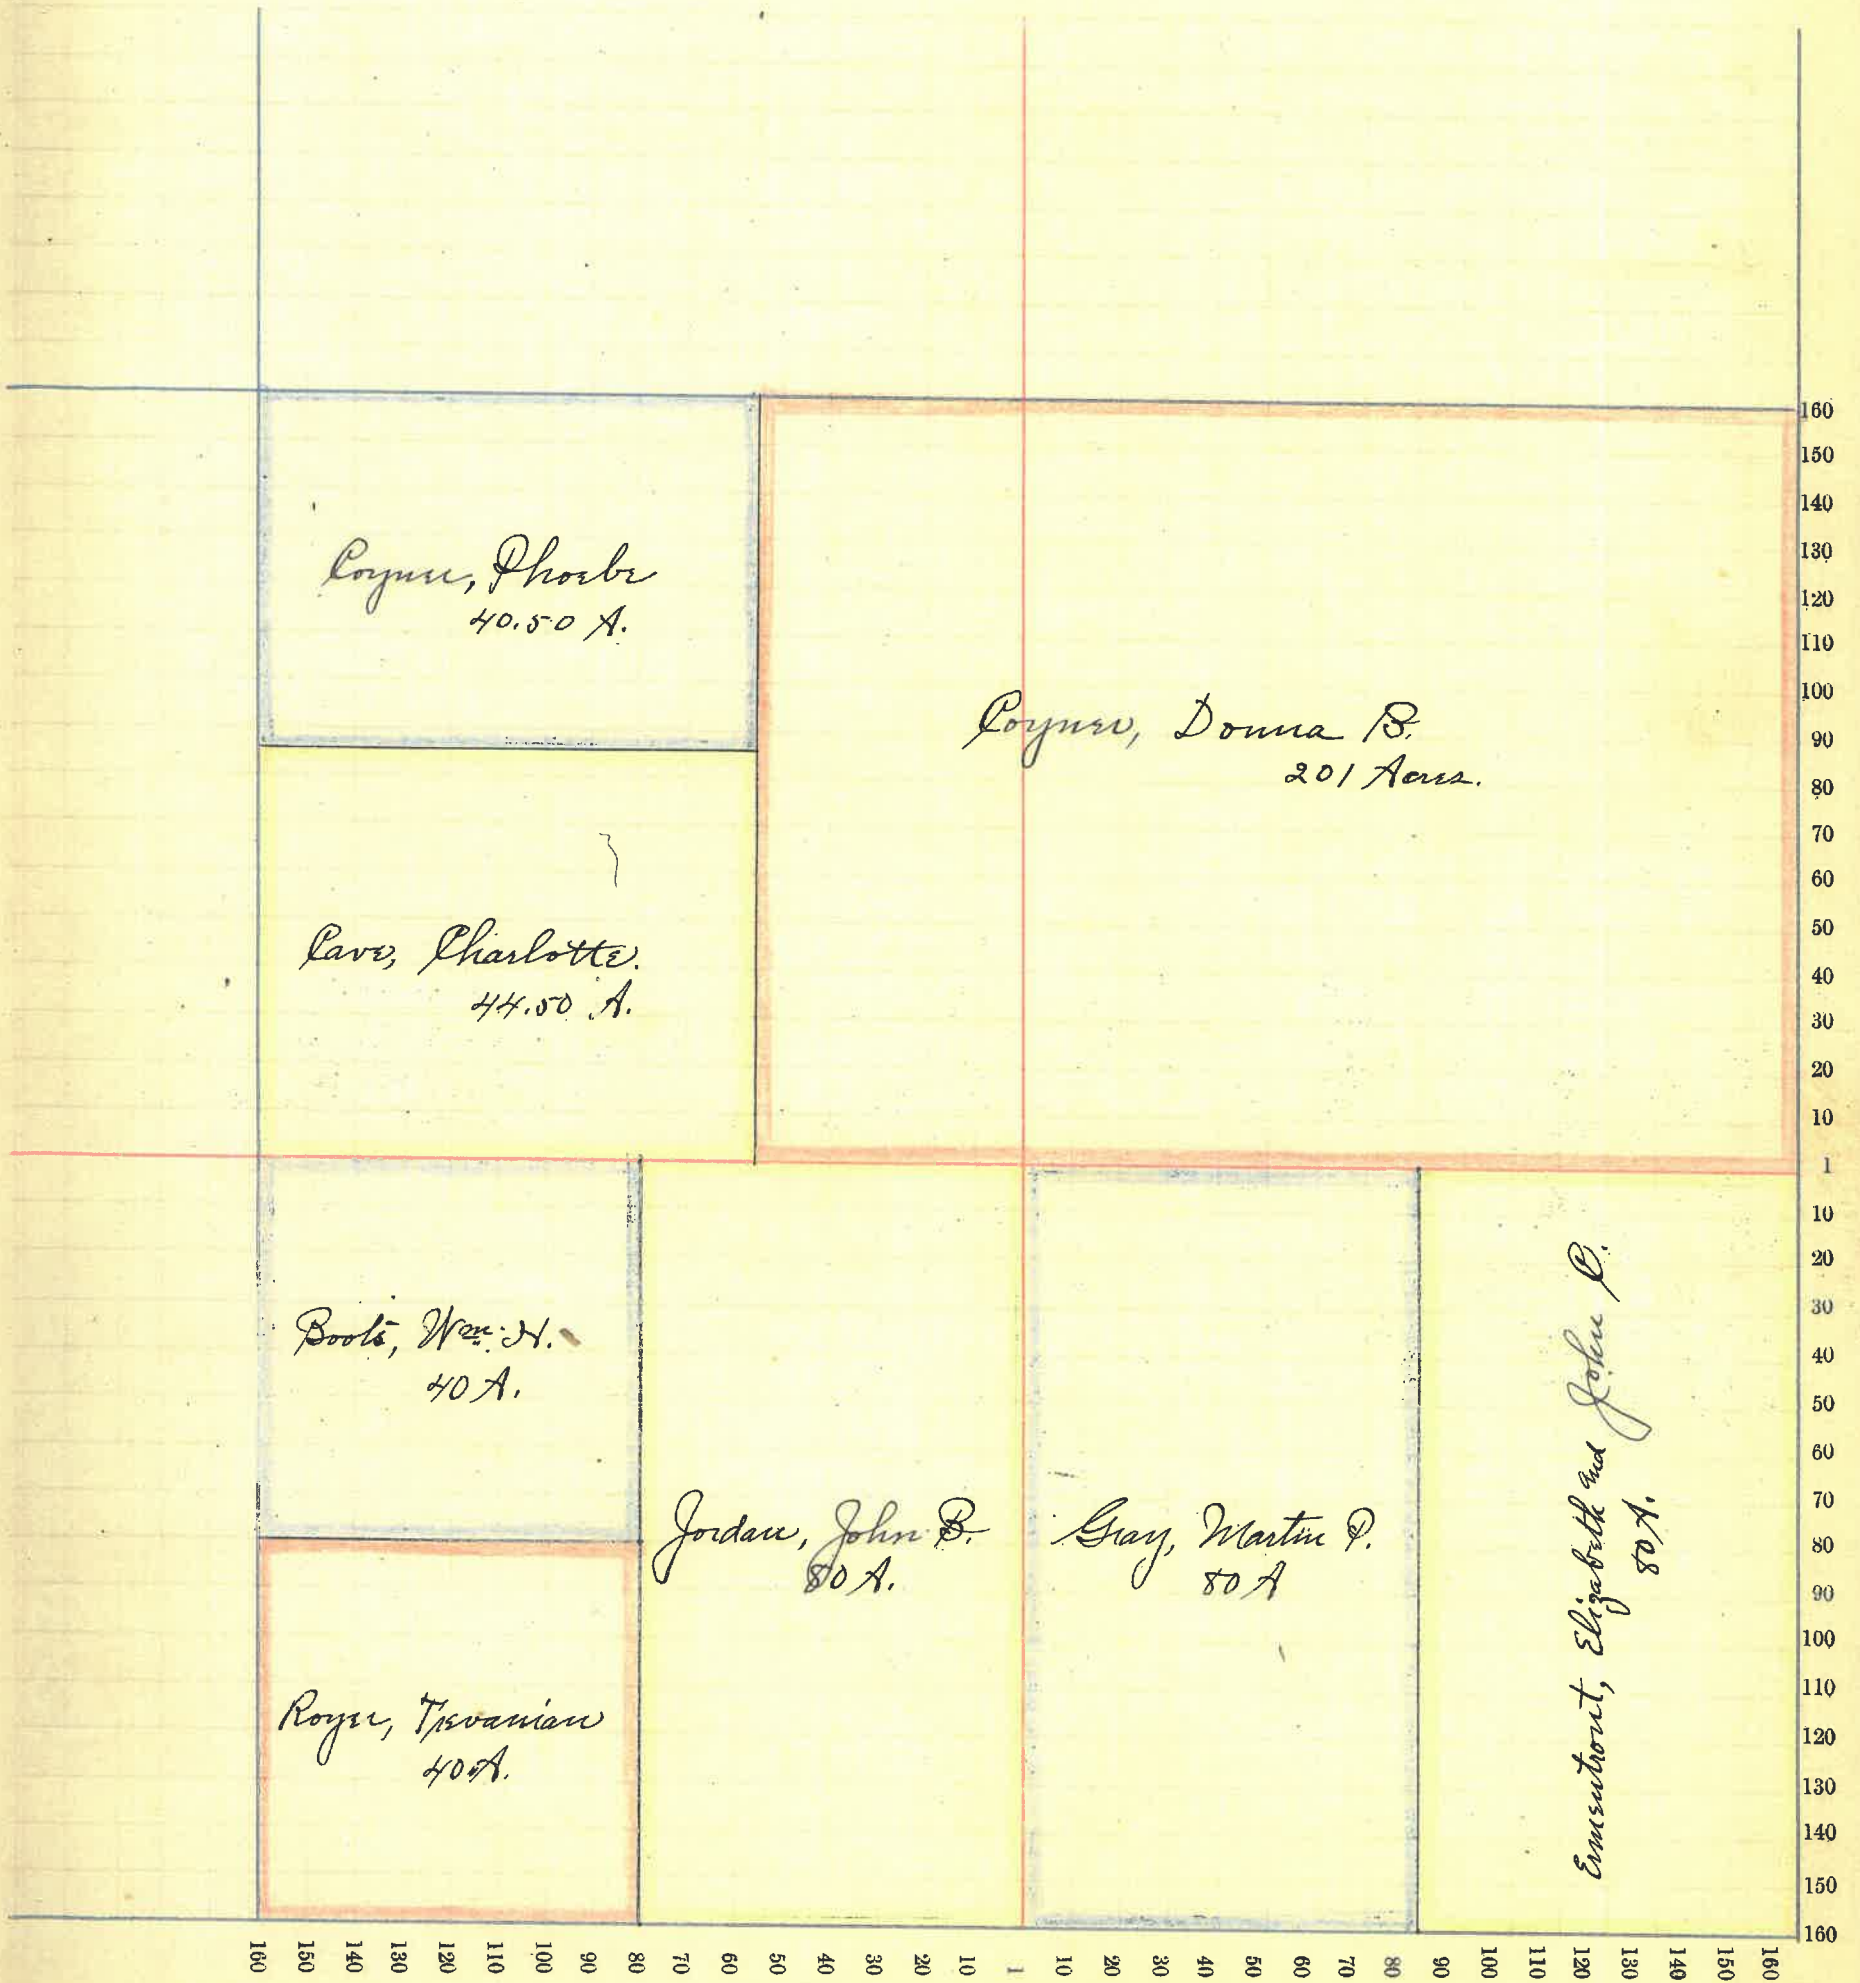 Coyner, Phoebe
40.50 A.
Coyner, Donna B.
201 Acres.
Cave, Charlotte.
44.50 A.
Boots, Wm. H.
40 A.
Jordan, John B.
80 A.
Gray, Martin P.
80 A
Ermentrout, Elizabeth and John C.
80 A.
Royer, Trevanian
40 A.
160
150
140
130
120
110
100
90
80
70
60
50
40
30
20
10
1
10
20
30
40
50
60
70
80
90
100
110
120
130
140
150
160
160 150 140 130 120 110 100 90 80 70 60 50 40 30 20 10 1 10 20 30 40 50 60 70 80 90 100 110 120 130 140 150 160